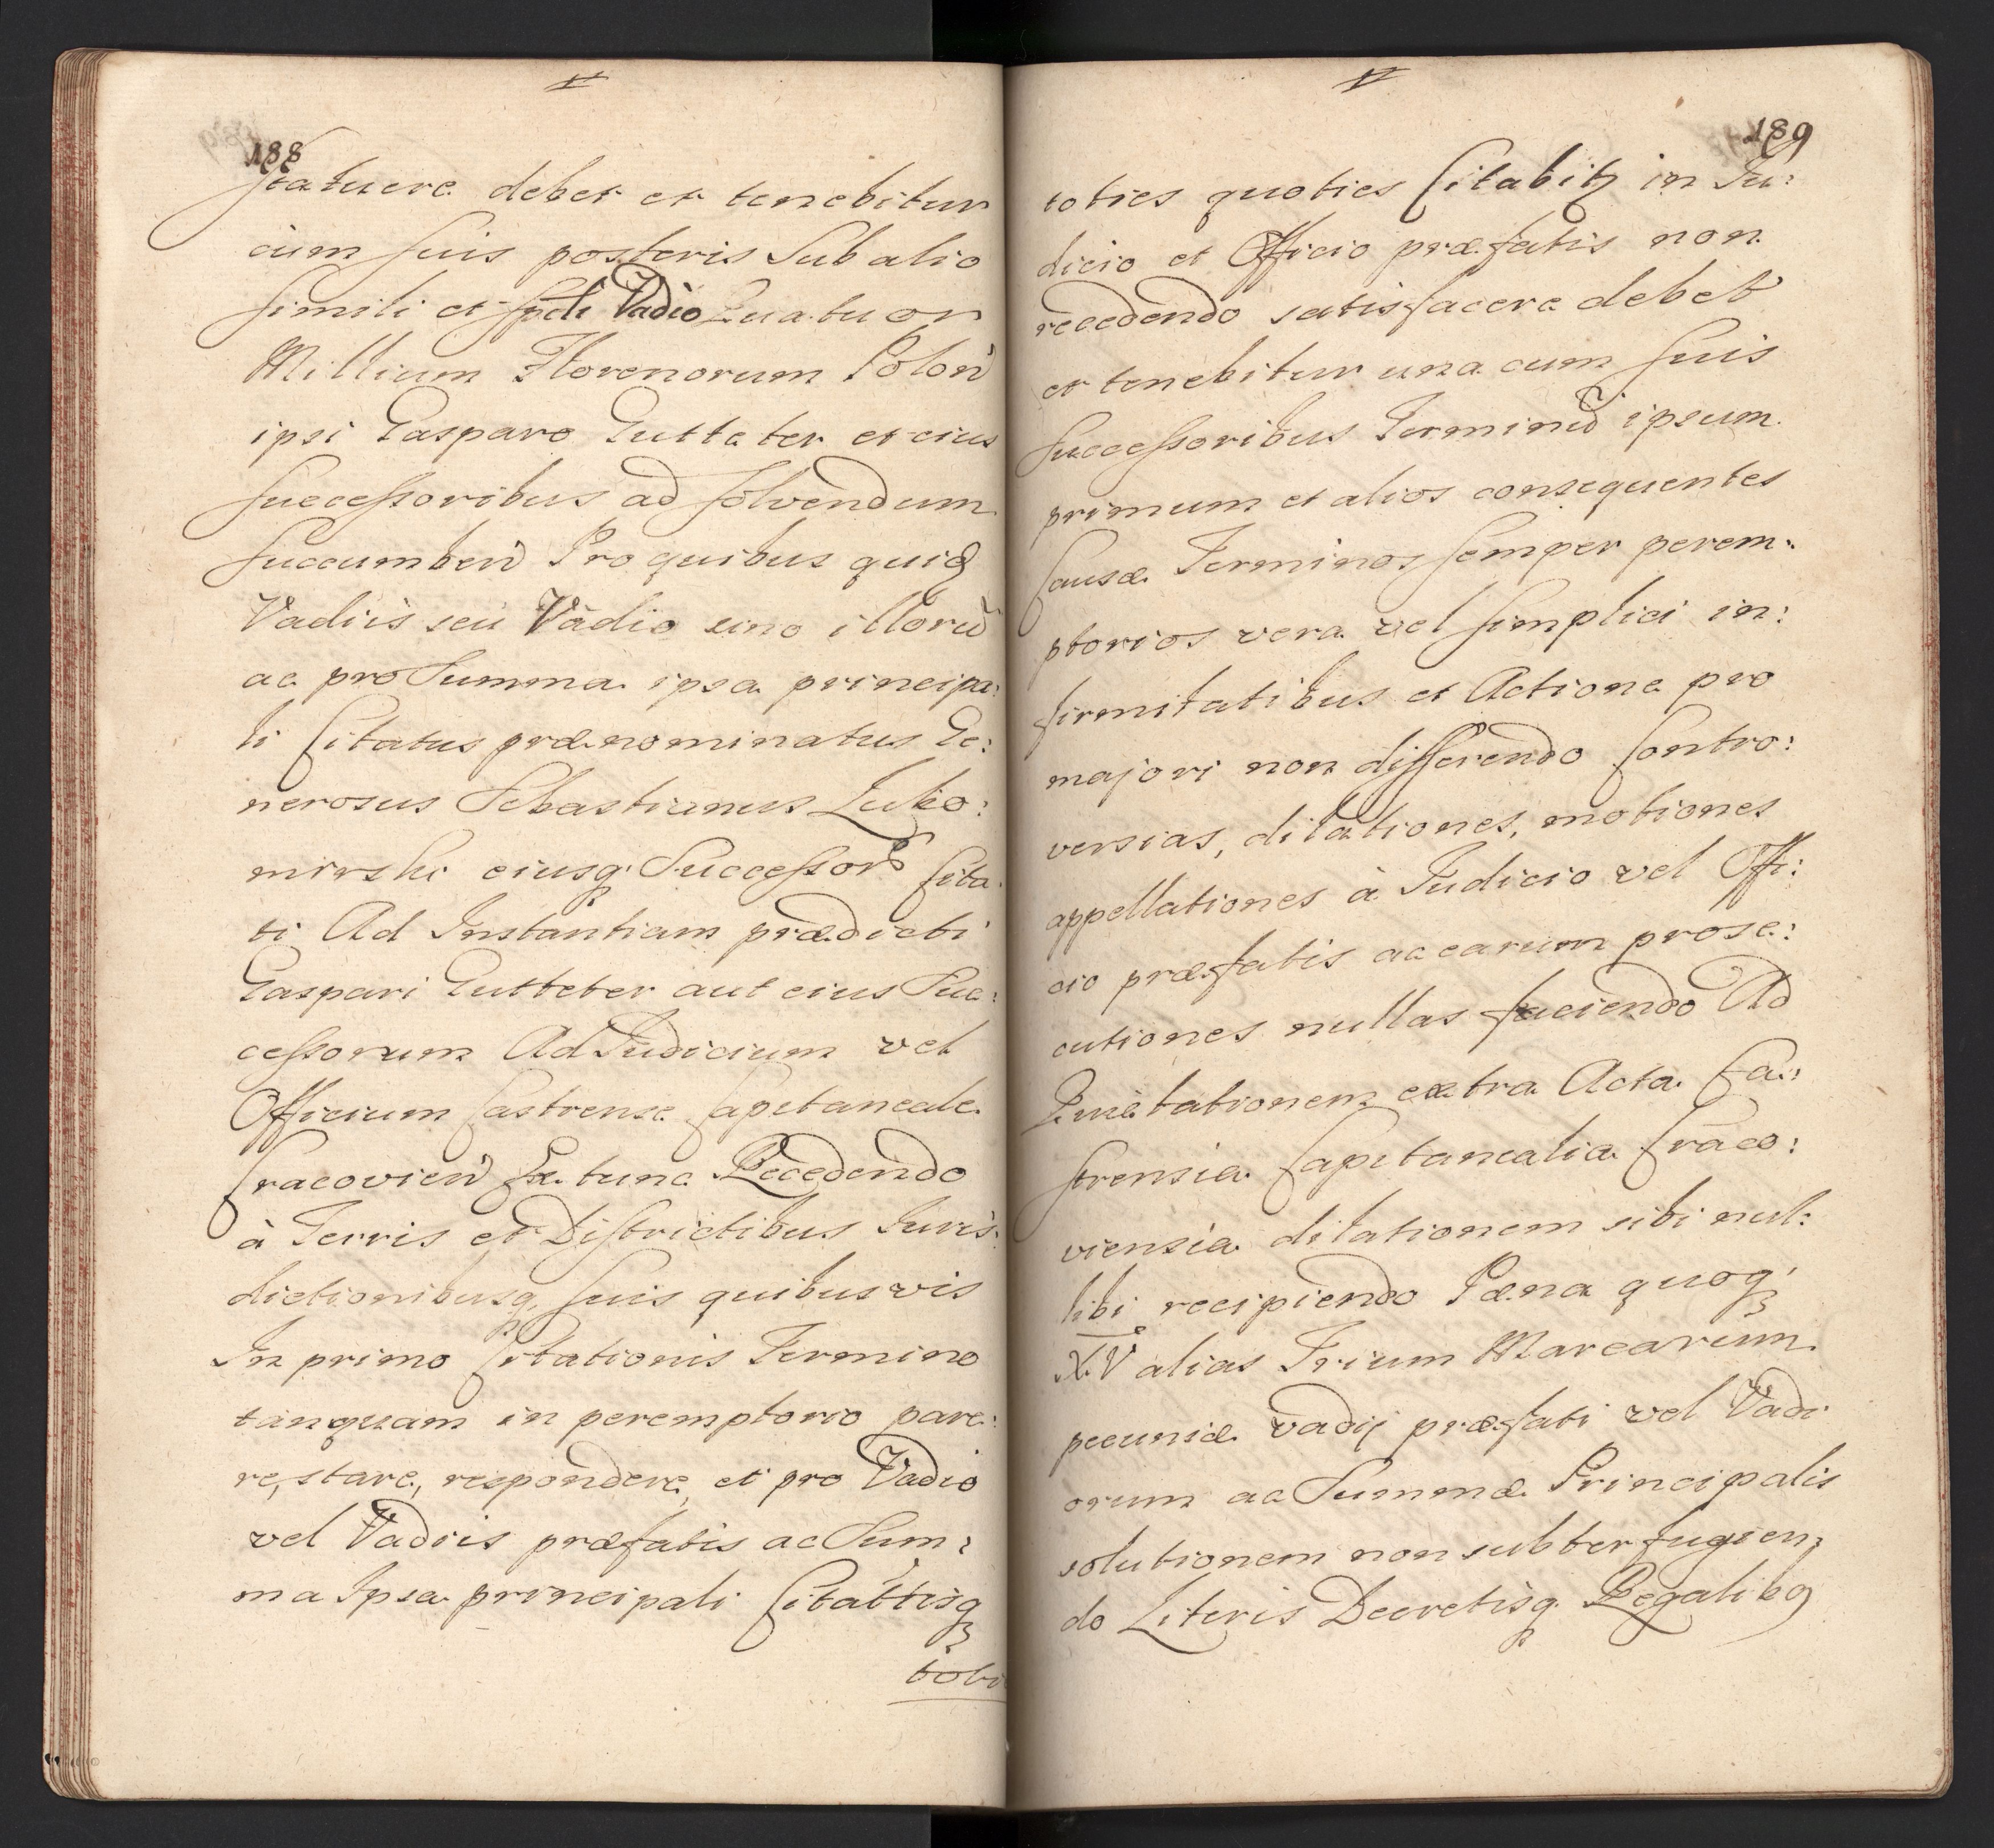 188
statuere debet et tenebitur
cum suis posteris Sub alio
simili et spãli Vadio Quatuor
Millium Florenorum Polon̄
ipsi Gasparo Gutteter et eius
successoribus ad solvendum
succumben̄ Pro quibus quiđ
Vadiis seu Vadio uno illorū
ac pro Summa ipsa principa:
li Citatus prænominatus Ge:
nerosus Sebastianus Lubo:
mirski eiusq; Successor̄ Cita:
ti Ad Instantiam prædicti
Gaspari Gutteter aut eius Suc:
cessorum Ad Judicium vel
Officium Castrense Capitaneale
Cracovien̄ Ex tunc Recedendo
à Terris et Districtibus Juris:
dictionibusq; suis quibusvis
In primo Citationis Termino
tanquam in peremptorio pare:
re, stare, respondere, et pro Vadio
vel Vadiis præfatis ac Sum:
ma Ipsa principali Citattisq;
toti
189
toties quoties Citabitꝫ in Ju:
dicio et Officio præfatis non
recedendo satisfacere debet
et tenebitur una cum suis
successoribus Terminū ipsum
primum et alios consequentes
Causæ Terminos semper perem:
ptorios vera vel simplici in:
firmitatibus et Actione pro
majori non differendo Contro:
versias, dilationes, motiones
appellationes à Judicio vel Offi:
cio præfatis ac earum prose:
cutiones nullas faciendo Ad
Quietationem extra Acta Ca:
strensia Capitanealia Craco:
viensia dilationem sibi nul:
libi recipiendo Pæna quoq;
XV alias Trium Marcarum
pecuniæ vadij præfati vel Vadi
orum ac Summæ Principalis
solutionem non subterfugien:
do Literis Decretisq; Regalibꝯ